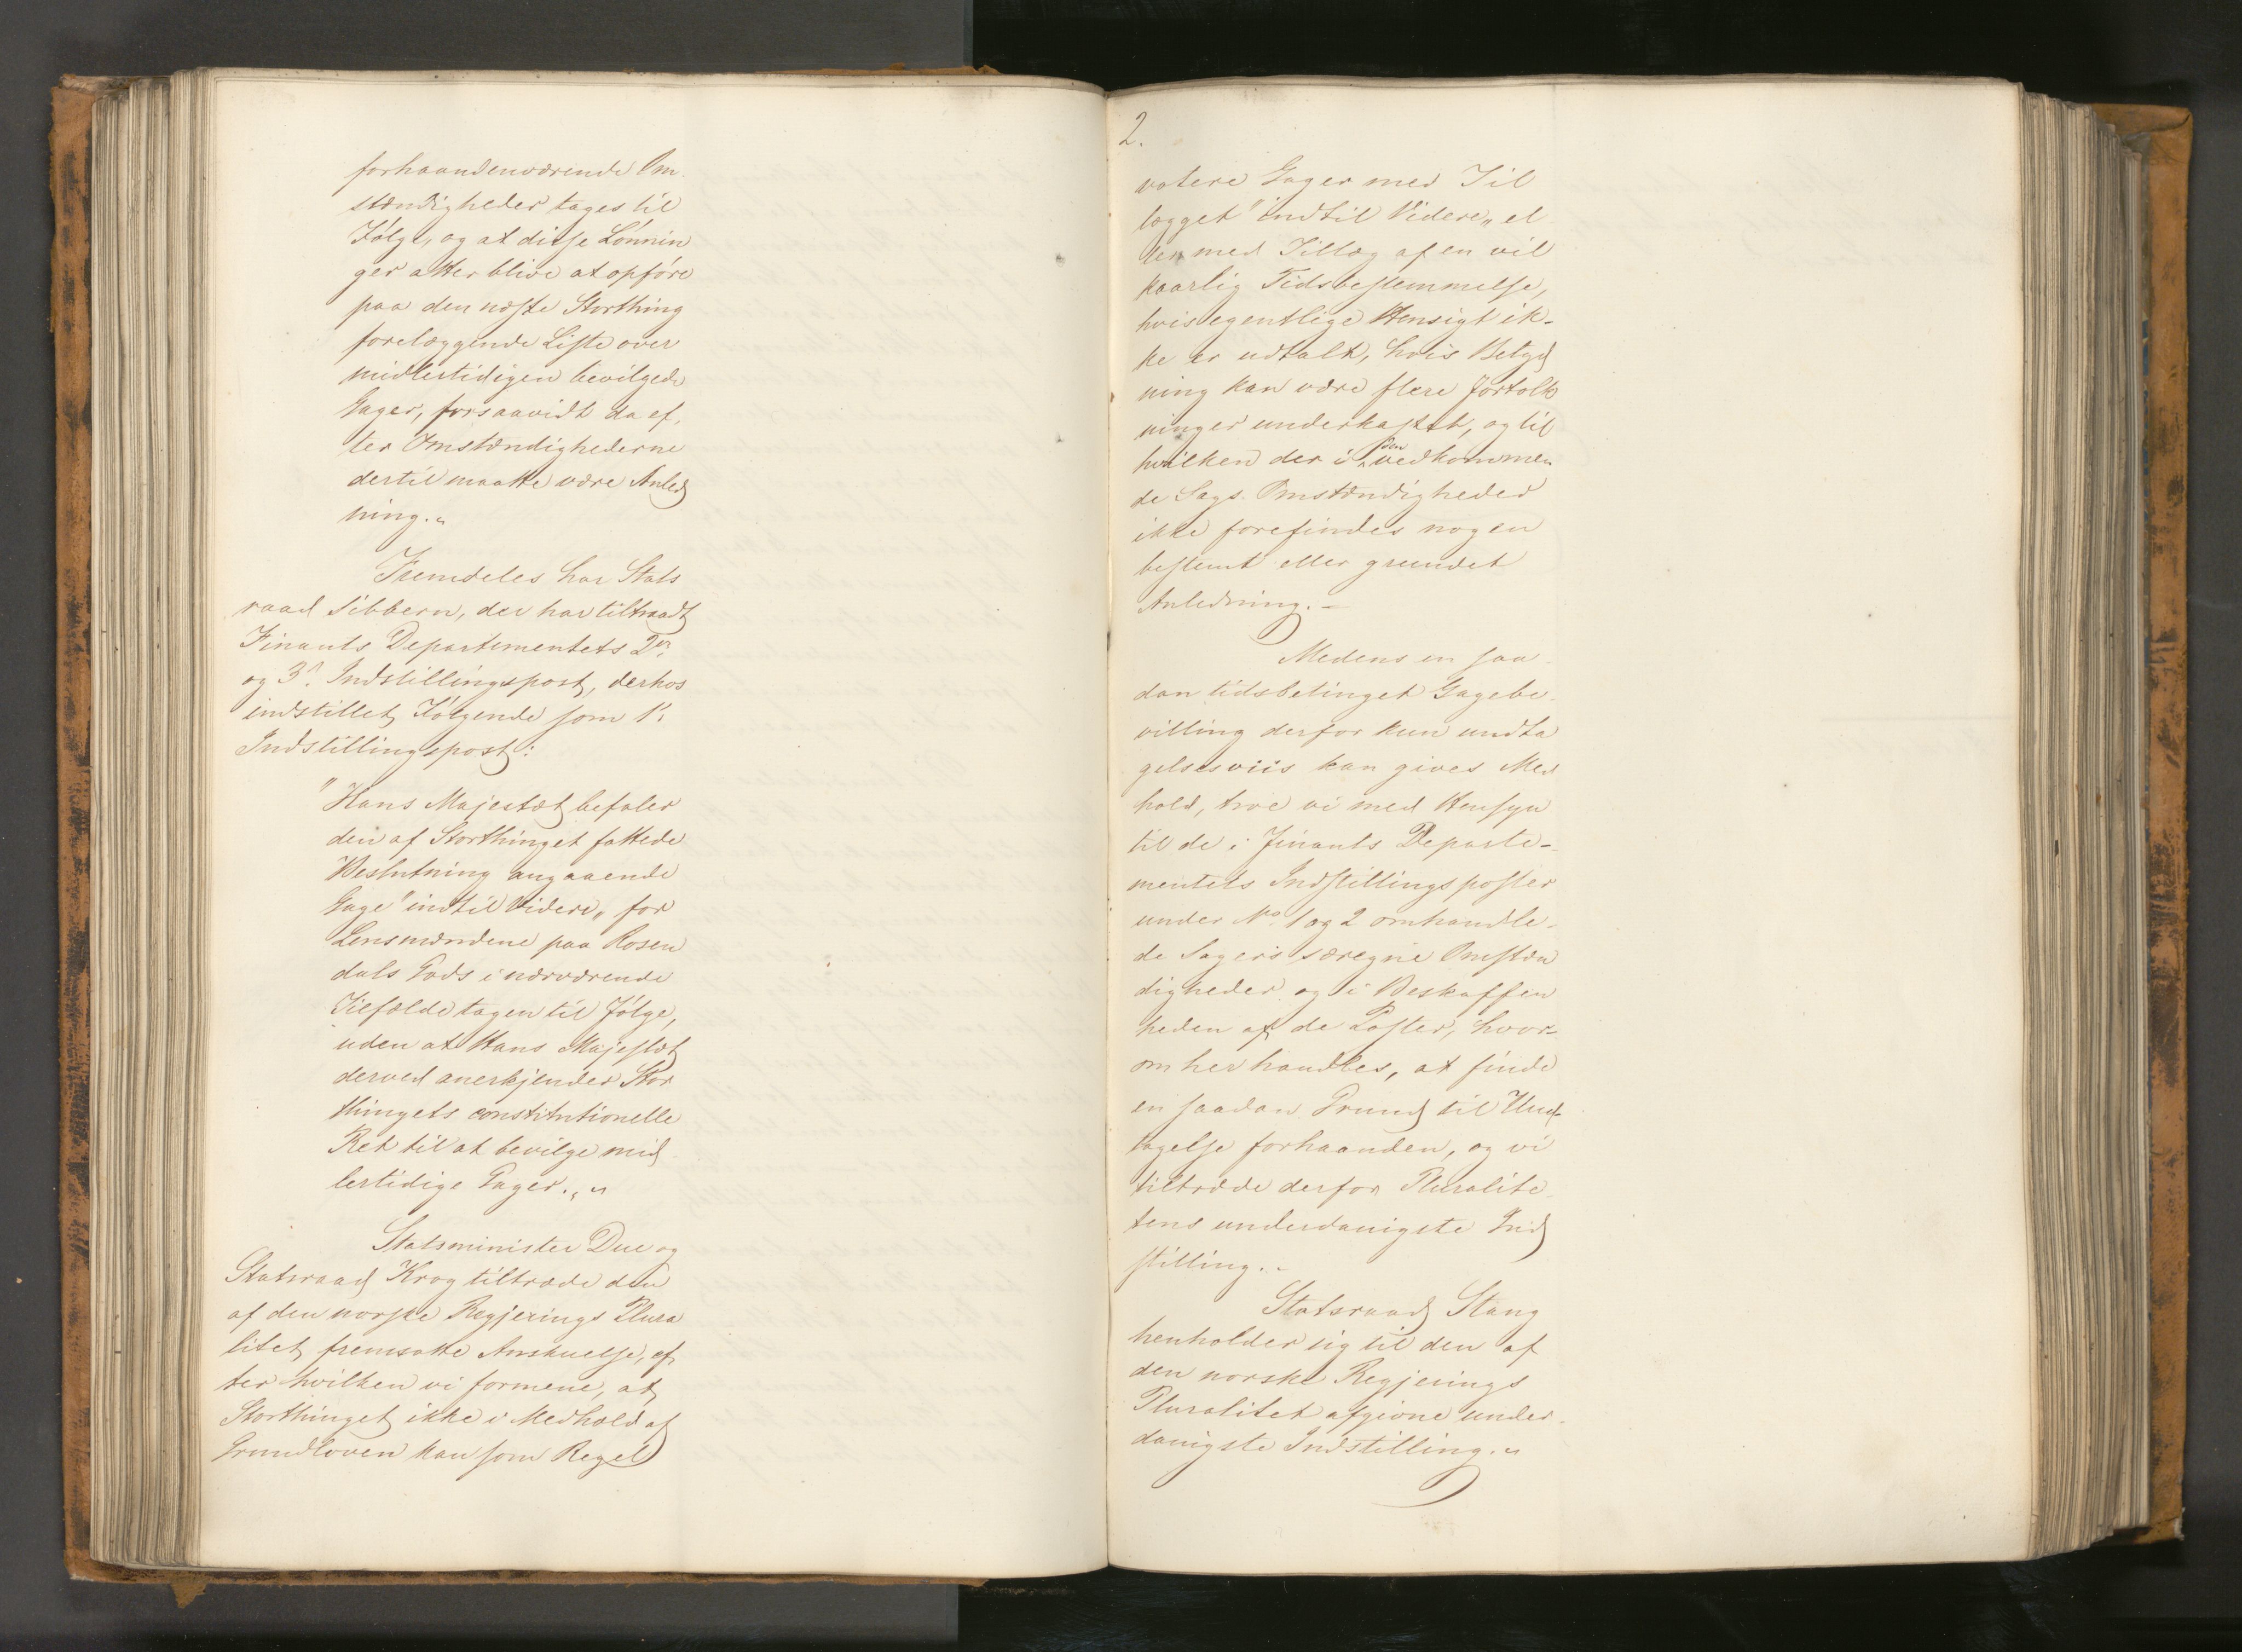 forhaandenværende Om
stændigheder tages til
Følge, og at disse Lønnin
ger atter blive at opføre
paa den næste Storthing
forelæggende Liste over
midlertidigen bevilgede
Gager, forsaavidt da ef,
ter Omstændighederne
dertil maatte være Anled
ning.„
Fremdeles har Stats
raad Sibbern, der har tiltraadt
Finants Departementets 2den
og 3die Indstillingspost, derhos
indstillet Følgende som 1ste
Indstillingspost:
"Hans Majestæt befaler
den af Storthinget fattede
Beslutning angaaende
Gage "indtil Videre„ for
Lensmændene paa Rosen
dals Gods i nærværende
Tilfælde tagen til Følge,
uden at Hans Majestæt
derved anerkjender Stor
thingets constitutionelle
Ret til at bevilge mid
lertidige Gager.„„
Statsminister Due og
Statsraad Krog tiltræde den
af den norske Regjerings Plura
litet fremsatte Anskuelse, ef
ter hvilken vi formene, at
Storthinget ikke i Medhold af
Grundloven kan som Regel
2.
votere Gager med Til
lægget "indtil Videre„ el
ler med Tillæg af en vil
kaarlig Tidsbestemmelse,
hvis egentlige Hensigt ik-
ke er udtalt, hvis Betyd
ning kan være flere Fortolk
ninger underkastet, og til
hvilken der i den vedkommen
de Sags Omstændigheder
ikke forefindes nogen
bestemt eller grundet
Anledning.-
Medens en saa
dan tidsbetinget Gagebe
villing derfor kun undta
gelsesviis kan gives Med
hold, troe vi med Hensyn
til de i Finants Departe-
mentets Indstillingsposter
under No 1 og 2 omhandle-
de Sagers særegne Omstæn
digheder og i Beskaffen
heden af de Poster, hvor-
om her handles, at finde
en saadan Grund til Und-
tagelse forhaanden, og vi
tiltræde derfor Pluralite
tens underdanigste Ind
stilling.-
Statsraad Stang
henholder sig til den af
den norske Regjerings
Pluralitet afgivne under-
danigste Indstilling.„